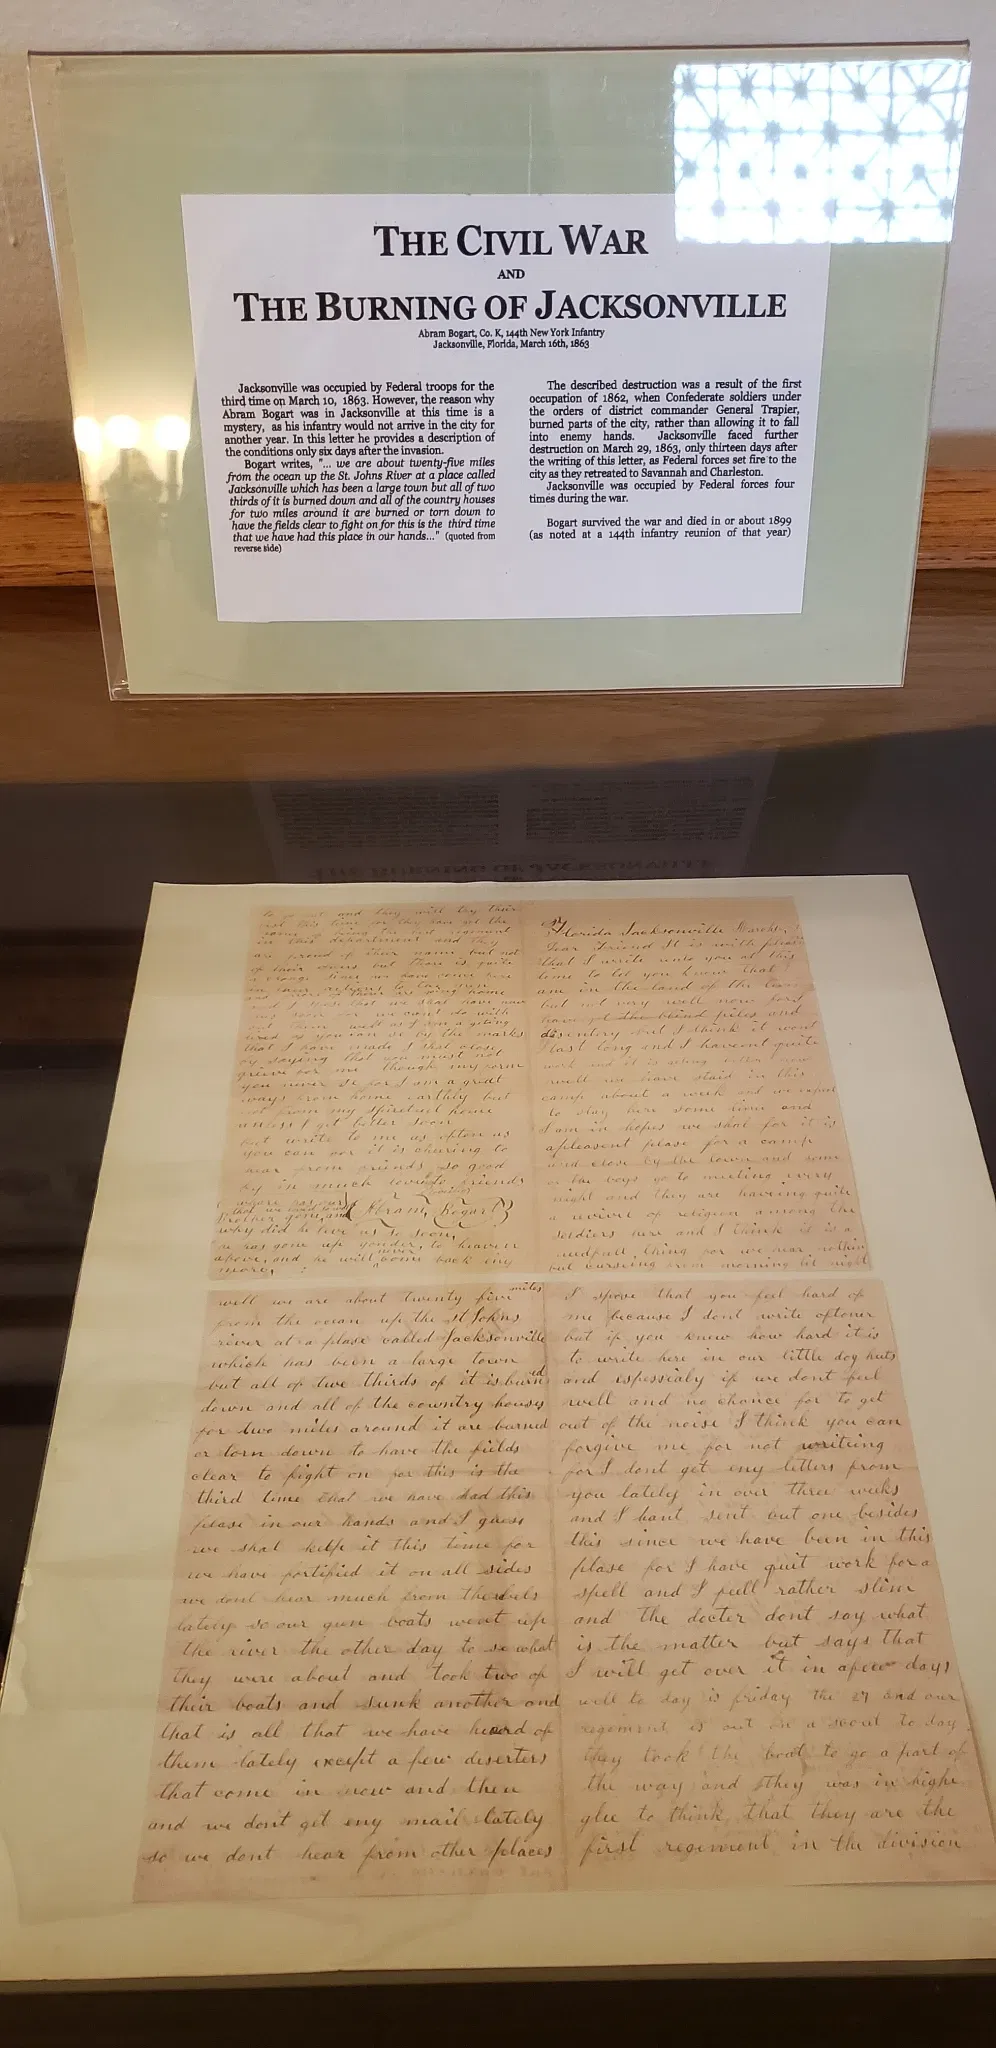 THE CIVIL WAR
AND
THE BURNING OF JACKSONVILLE
Abram Bogart, Co. K, 144th New York Infantry
Jacksonville, Florida, March 16th, 1863
Jacksonville was occupied by Federal troops for the
third time on March 10, 1863. However, the reason why
Abram Bogart was in Jacksonville at this time is a
mystery, as his infantry would not arrive in the city for
another year. In this letter he provides a description of
the conditions only six days after the invasion.
Bogart writes, "... we are about twenty-five miles
from the ocean up the St. Johns River at a place called
Jacksonville which has been a large town but all of two
thirds of it is burned down and all of the country houses
for two miles around it are burned or torn down to
have the fields clear to fight on for this is the third time
that we have had this place in our hands..." (quoted from
reverse side)
The described destruction was a result of the first
occupation of 1862, when Confederate soldiers under
the orders of district commander General Trapier,
burned parts of the city, rather than allowing it to fall
into enemy hands. Jacksonville faced further
destruction on March 29, 1863, only thirteen days after
the writing of this letter, as Federal forces set fire to the
city as they retreated to Savannah and Charleston.
Jacksonville was occupied by Federal forces four
times during the war.
Bogart survived the war and died in or about 1899
(as noted at a 144th infantry reunion of that year)
and they will try their
this time for they have got the
name of being the best regiment
in this department and they
are proud of their name but not
of their
that we shal have now
out them well as I am a giting
tired as you can se by the marks
that I have made I shal close
by saying that you must not
grieve for me though my form
you never se for I am a great
ways from home earthly but
not from my spiretuel home
unless I get better soon
but write to me as often as
you can for it is chearing to
hear from friends so good
by in much love to friends
Abram Bogart
why did he leve us so soon,
he has gone up yonder, to heaven
above, and he will never come back eny
more,
Florida Jacksonville March
Dear Friend It is with pleas
that I write unto you at this
time to let you know that I
am in the land of the living
but not very well now for I
have got the blind piles and
disentry but I think it wont
last long and I havent quite
well we have staid in this
camp about a week and we expect
to stay here some time and
I am in hopes we shal for it is
apleasent plase for a camp
and close by the town and some
of the boys go to meeting every
night and they are haveing quite
a revivel of religion among the
soldiers here and I think it is a
needfull thing for we hear nothin
but curseing from morning til night
well we are about twenty five miles
from the ocean up the st Johns
river at a plase called Jacksonville
which has been a large town
but all of two thirds of it is burned
down and all of the country houses
for two miles around it are burned
or torn down to have the fields
clear to fight on for this is the
third time that we have had this
plase in our hands and I guess
we shal keep it this time for
we have fortified it on all sides
we dont hear much from the rebels
lately so our gun boats went up
the river the other day to se what
they were about and took two of
their boats and sunk another and
that is all that we have heard of
them lately except a few deserters
that come in now and then
and we dont get eny mail lately
so we dont hear from other places
I spose that you feel hard of
me because I dont write oftener
but if you knew how hard it is
to write here in our little dog huts
and espessialy if we dont feel
well and no chance for to get
out of the noise I think you can
forgive me for not writeing
for I dont get eny letters from
you lately in over three weeks
and I hant sent but one besides
this since we have been in this
plase for I have quit work for a
spell and I feel rather slim
and the docter dont say what
is the matter but says that
I will get over it in afew days
well to day is friday the 27 and our
regiment is out on a scout to day
they took the boat to go a part of
the way and they was in highe
glee to think that they are the
first regement in the division